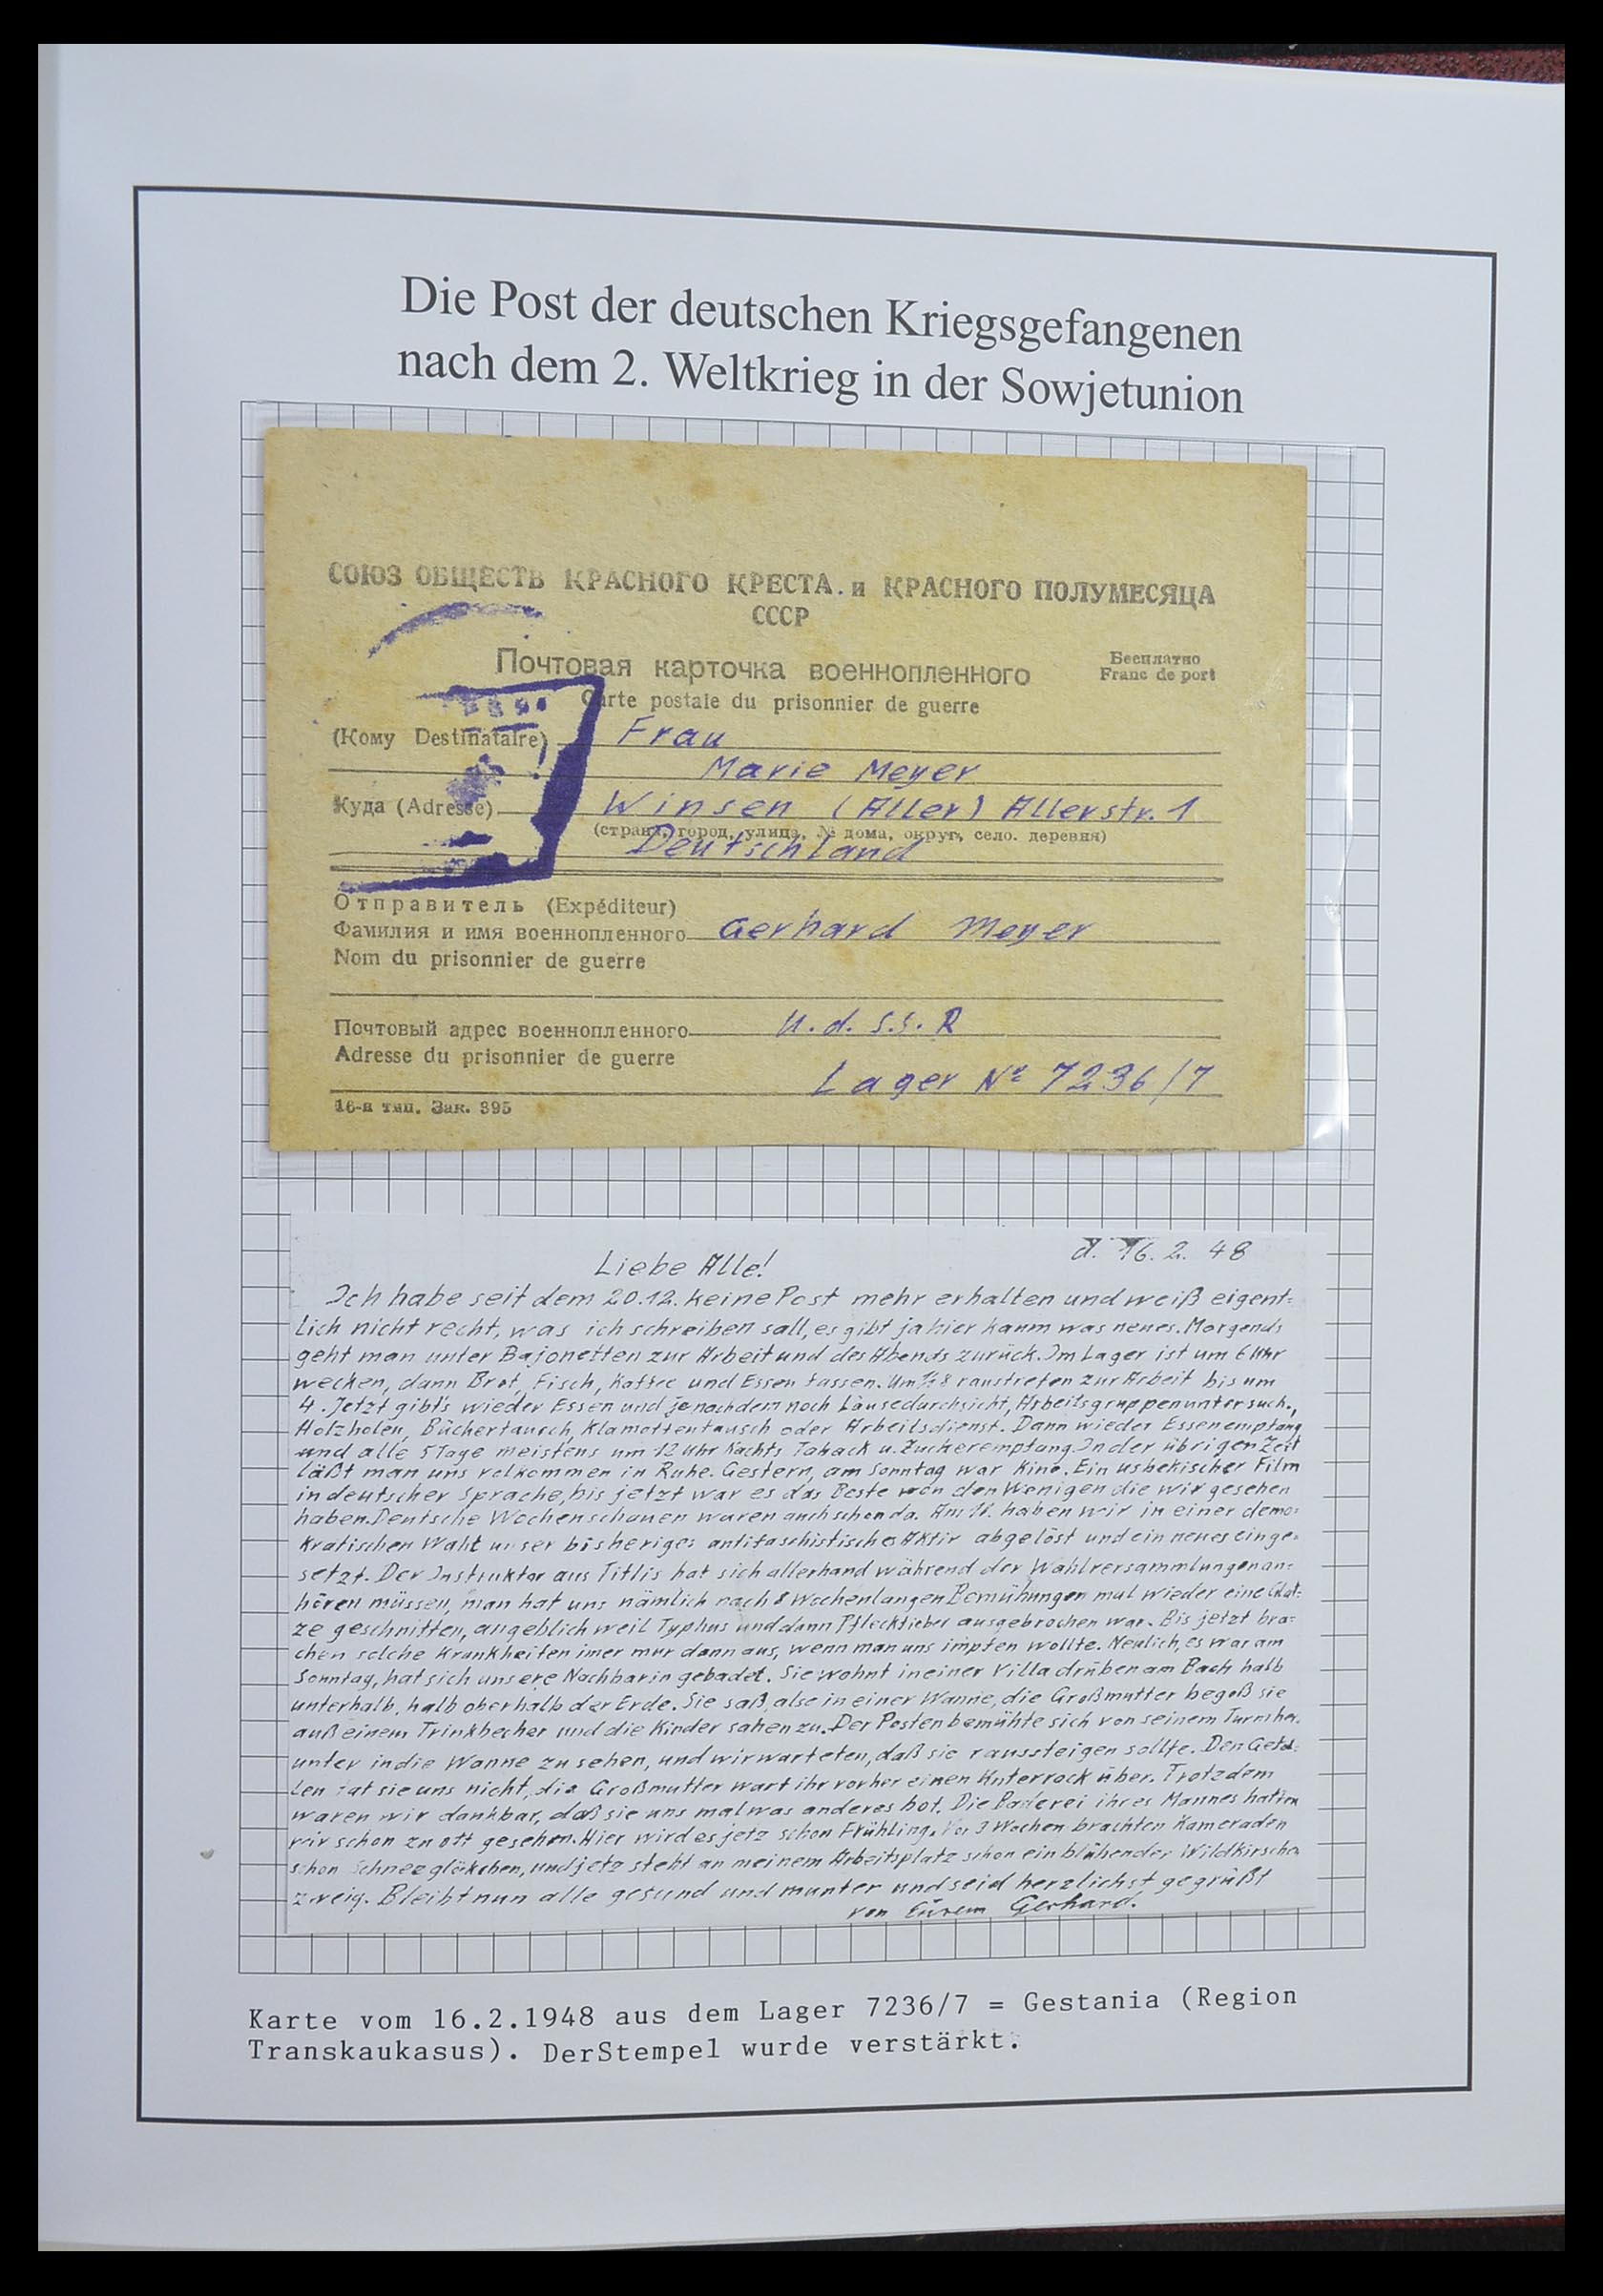 Die Post der deutschen Kriegsgefangenen
nach dem 2. Weltkrieg in der Sowjetunion
СОЮЗ ОБЩЕСТВ КРАСНОГО КРЕСТА и КРАСНОГО ПОЛУМЕСЯЦА
СССР
Почтовая карточка военнопленного
Бесплатно
Franc de port
Carte postale du prisonnier de guerre
(Кому Destinataire) Frau
Marie Meyer
Куда (Adresse) Winsen (Aller) Allerstr. 1
(страна, город, улица, № дома, округ, село. деревня)
Deutschland
Отправитель (Expéditeur)
Фамилия и имя военнопленного Gerhard Meyer
Nom du prisonnier de guerre
Почтовый адрес военнопленного U.d.S.S.R
Adresse du prisonnier de guerre
Lager № 7236/7
16-я тип. Зак. 395
d. 16. 2. 48
Liebe Alle!
Ich habe seit dem 20.12. keine Post mehr erhalten und weiß eigent-
lich nicht recht, was ich schreiben sall, es gibt ja hier kaum was neues. Morgends
geht man unter Bajonetten zur Arbeit und des Abends zurück. Im Lager ist um 6 Uhr
wecken, dann Brot, Fisch, Kaffee und Essen fassen. Um ½8 raustreten zur Arbeit bis um
4. Jetzt gibt's wieder Essen und je nachdem noch Läusedurchsicht, Arbeitsgruppenuntersuch.,
Holzholen, Büchertausch, Klamottentausch oder Arbeitsdienst. Dann wieder Essenempfang
und alle 5 Tage meistens um 12 Uhr Nachts Taback u. Zuckerempfang. In der übrigen Zeit
läßt man uns volkommen in Ruhe. Gestern, am Sonntag war Kino. Ein usbekischer Film
in deutscher Sprache, bis jetzt war es das Beste von den Wenigen die wir gesehen
haben. Deutsche Wochenschauen waren auch schon da. Am haben wir in einer demo-
kratischen Wahl unser bisheriges antifaschistisches Aktiv abgelöst und ein neues einge-
setzt. Der Instruktor aus Tiflis hat sich allerhand während der Wahlversammlungen an-
hören müssen, man hat uns nämlich nach 8 Wochenlangen Bemühungen mal wieder eine Glat-
ze geschnitten, angeblich weil Typhus und dann Pfleckfieber ausgebrochen war. Bis jetzt bra-
chen solche Krankheiten imer nur dann aus, wenn man uns impfen wollte. Neulich, es war am
Sonntag, hat sich unsere Nachbarin gebadet. Sie wohnt in einer Villa drüben am Bach halb
unterhalb, halb oberhalb der Erde. Sie saß also in einer Wanne, die Großmutter begoß sie
auß einem Trinkbecher und die Kinder sahen zu. Der Posten bemühte sich von seinem Turm her-
unter in die Wanne zu sehen, und wir warteten, daß sie raussteigen sollte. Den Gefal-
len tat sie uns nicht, die Großmutter warf ihr vorher einen Unterrock über. Trotzdem
waren wir dankbar, daß sie uns mal was anderes bot. Die Baderei ihres Mannes hatten
wir schon zu oft gesehen. Hier wird es jetz schon Frühling. Vor 3 Wochen brachten Kameraden
schon Schneeglökchen, und jetz steht an meinem Arbeitsplatz schon ein blühender Wildkirschen
zweig. Bleibt nun alle gesund und munter und seid herzlichst gegrüßt
von Eurem Gerhard.
Karte vom 16.2.1948 aus dem Lager 7236/7 = Gestania (Region
Transkaukasus). DerStempel wurde verstärkt.